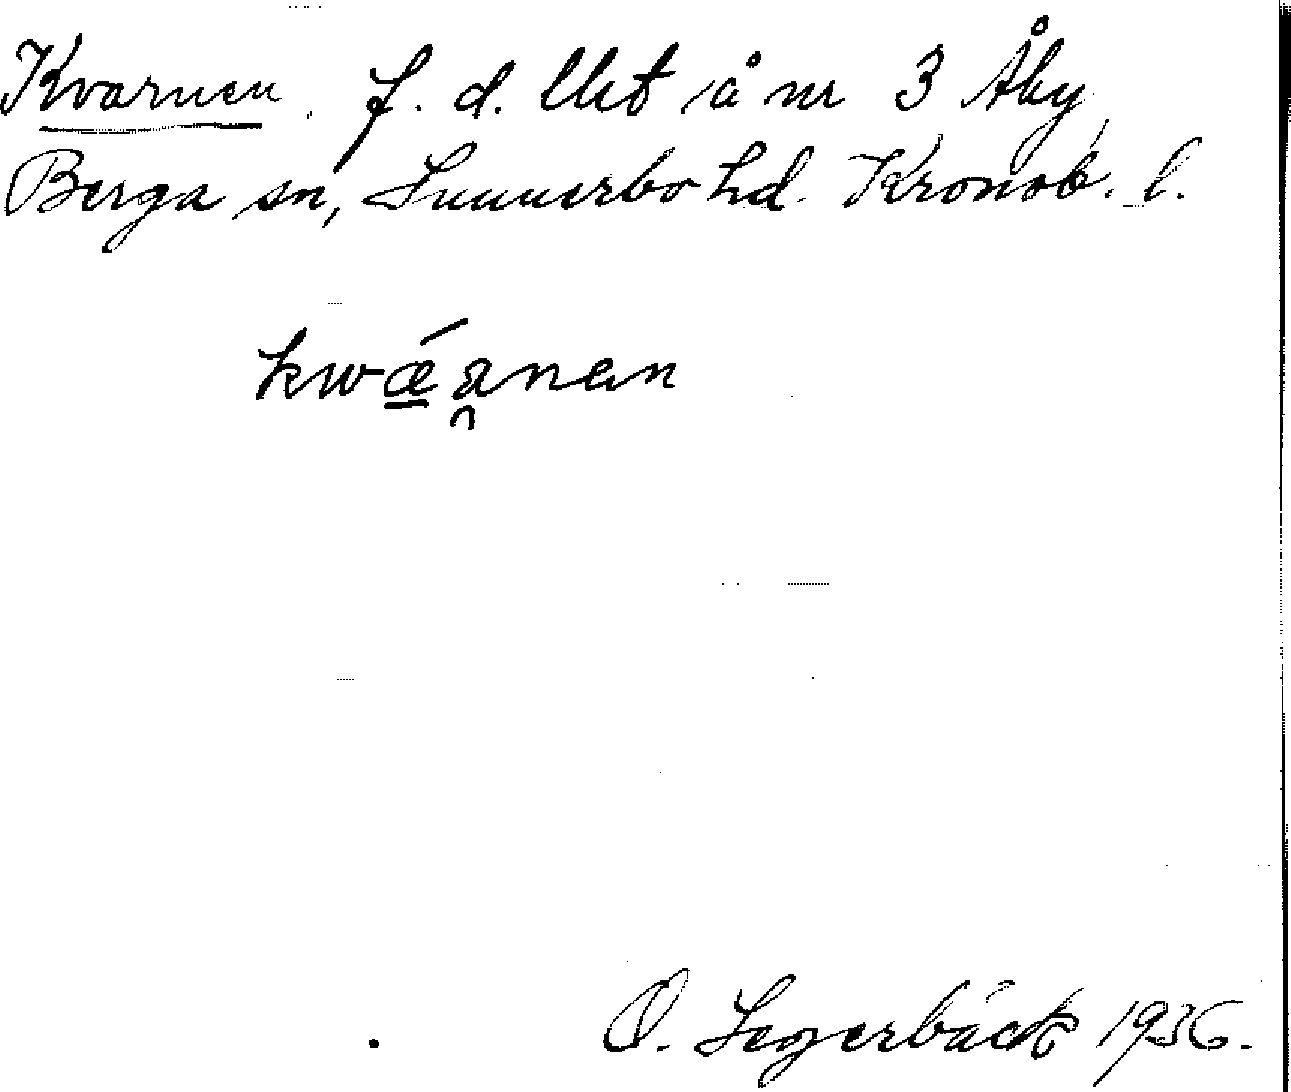 Kvarnen, f. d. lht å nr 3 Åby,
Berga sn, Sunnerbo hd. Kronob. l.
kwǽa̯nan
O. Segerbäck 1936.